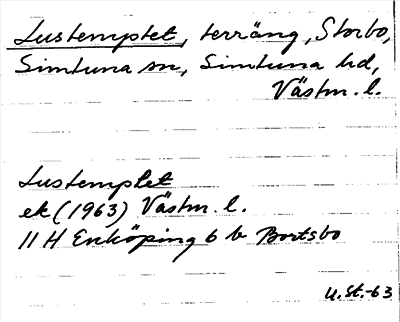 Lustemptet, terräng, Storbo,
Simtuna sn, Simtuna hd,
Västm. l.
Lustemptet
ek (1963) Västm. l.
11 H Enköping 6 b Bortsbo
U. St. -63